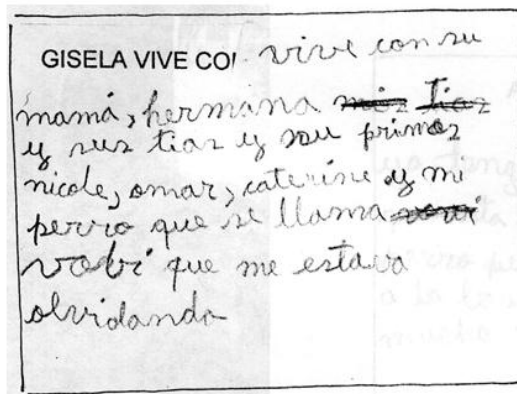 GISELA VIVE CON vive con su
mamá, hermana mis tias
y sus tias y su primos
nicole, omar, caterine y mi
perrio que se llama
vobi que me estava
olvidando